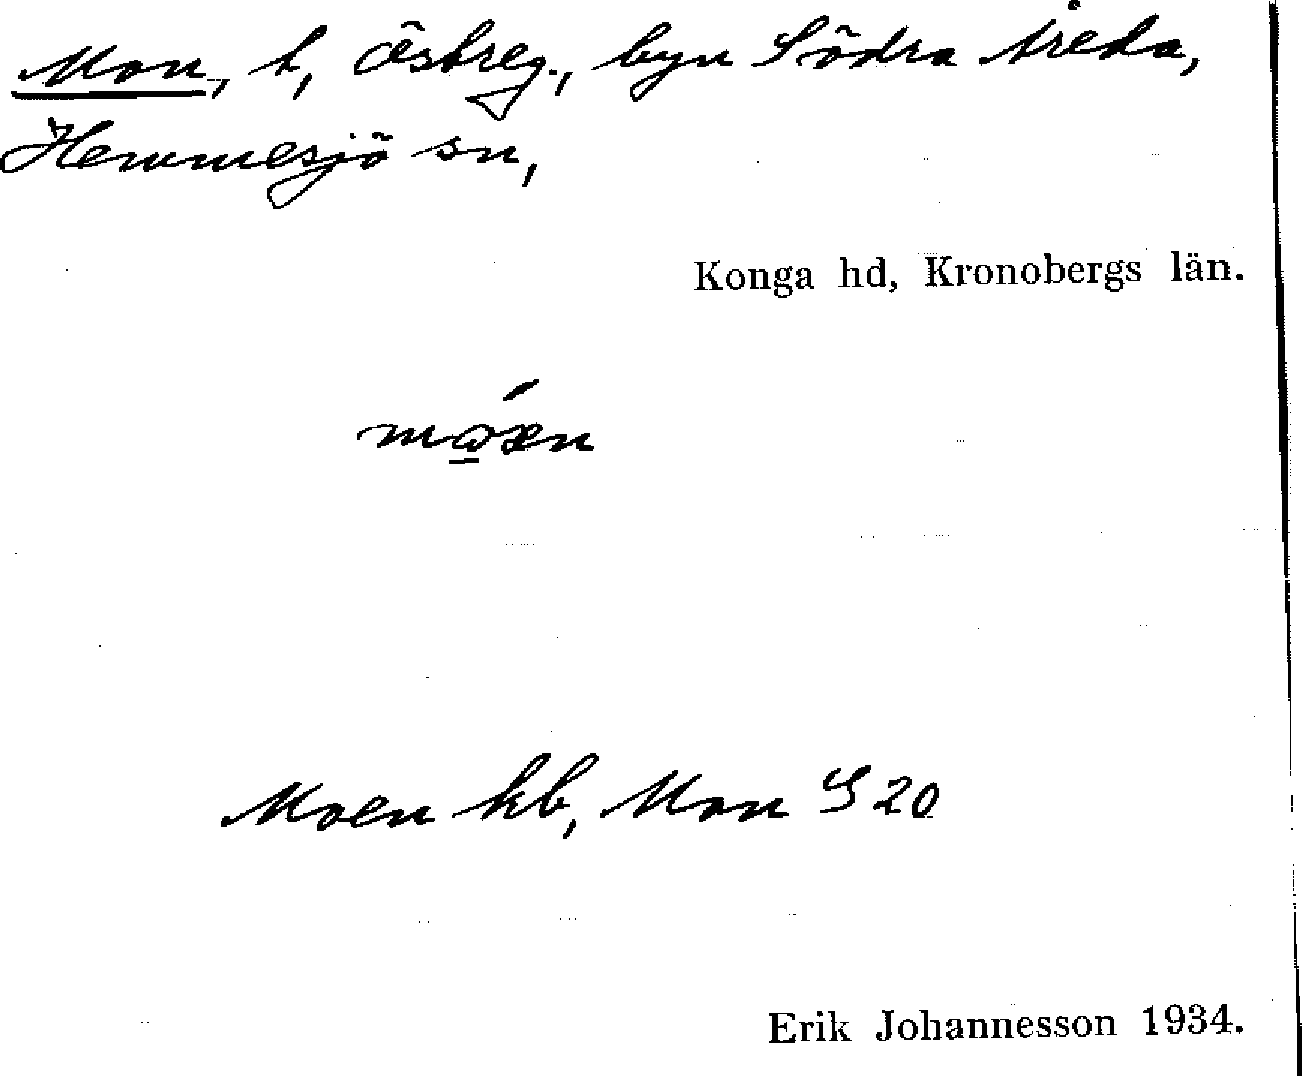 Mon, t, Östreg., byn Södra Åreda,
Hemmesjö sn,
Konga hd, Kronobergs län.
Moen kb, Mon S 20
Erik Johannesson 1934.